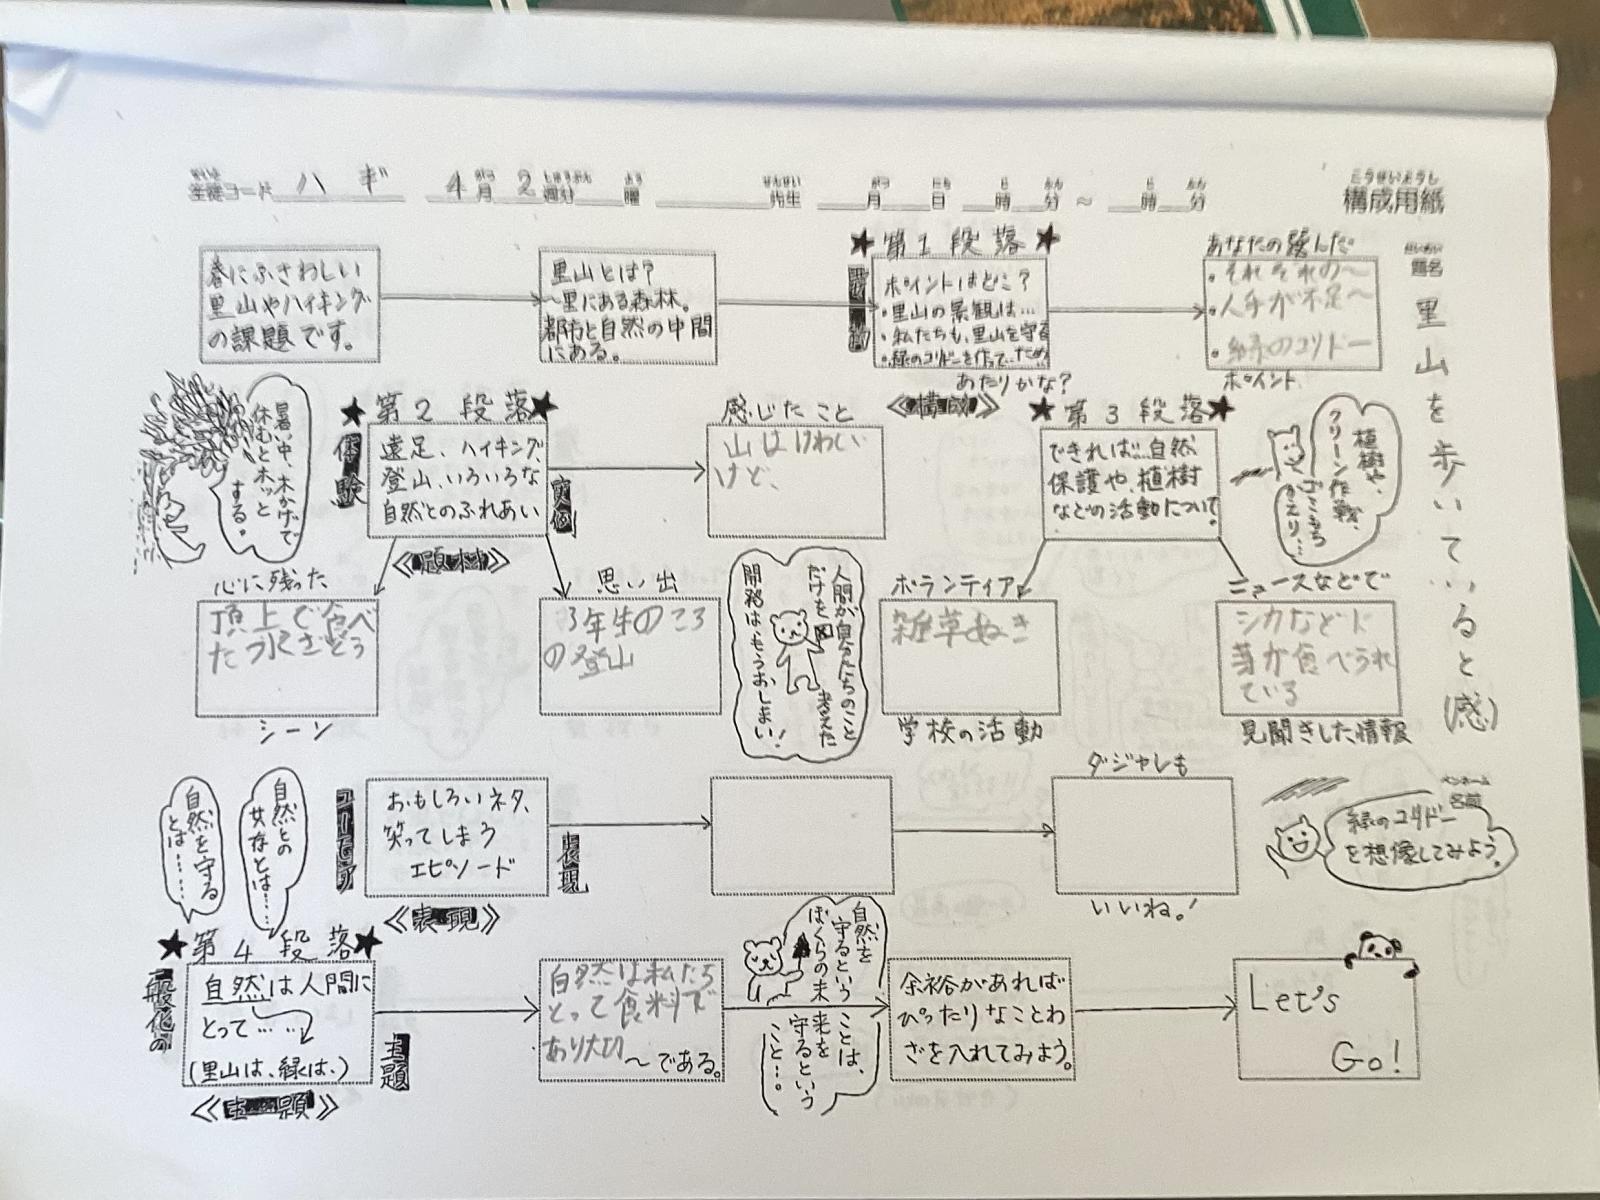 構成用紙
生徒コード ハギ 4月2週分 曜 先生 月 日 時 分 ～ 時 分
題名 里山を歩いていると(感)
名前
春にふさわしい
里山やハイキング
の課題です。
里山とは?
～里にある森林。
都市と自然の中間
にある。
★第1段落★
要約
ポイントはどこ?
・里山の景観は…
・私たちも、里山を守る
・緑のコリドーを作って…ため
あたりかな?
《構成》
あなたの読んだ
・それぞれの～
・人手が不足～
・緑のコリドー
ポイント
暑い中、木かげで
休むとホッと
する。
★第2段落★
体験
遠足、ハイキング、
登山、いろいろな
自然とのふれあい
実例
《題材》
感じたこと
山はけわしい
けど、
★第3段落★
できれば…自然
保護や、植樹
などの活動について。
植樹や、
クリーン作戦、
ゴミもち
かえり…
心に残った
頂上で食べ
た氷ざとう
シーン
思い出
3年生のころ
の登山
人間が自分たちのこと
だけを考えた
開発はもうおしまい!
ボランティア
雑草ぬき
学校の活動
ニュースなどで
シカなどに
芽が食べられ
ている
見聞きした情報
自然を守る
とは……
自然との
共存とは……
ユーモア
おもしろいネタ、
笑ってしまう
エピソード
表現
《表現》
ダジャレも
いいね!
緑のコリドー
を想像してみよう。
★第4段落★
一般化の
自然は人間に
とって……
(里山は、緑は、)
主題
《主題》
自然は私たち
とって食料で
あり大切
～である。
自然を
守るという
ことは、
ぼくらの未
来を
守るという
こと…。
余裕があれば
ぴったりなことわ
ざを入れてみよう。
Let's
Go!